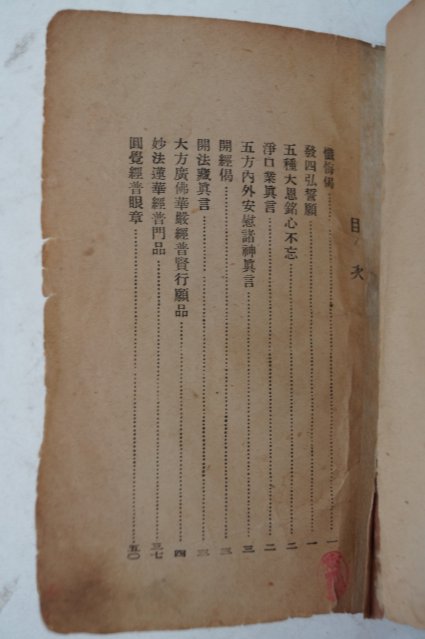 目次
懺悔偈 一
發四弘誓願 一
五種大恩銘心不忘 二
淨口業眞言 二
五方內外安慰諸神眞言 三
開經偈 三
開法藏眞言 三
大方廣佛華嚴經普賢行願品 四
妙法蓮華經普門品 三七
圓覺經普眼章 五〇